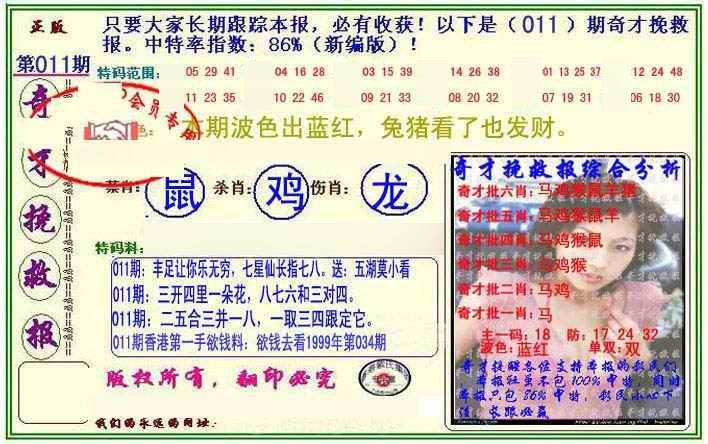 正版
只要大家长期跟踪本报，必有收获！以下是（011）期奇才挽救
报。中特率指数：86%（新编版）！
第011期
奇
才
挽
救
报
特码范围：
05 29 41 04 16 28 03 15 39 14 26 38 01 13 25 37 12 24 48
11 23 35 10 22 46 09 21 33 08 20 32 07 19 31 06 18 30
会员专
色：本期波色出蓝红，兔猪看了也发财。
禁肖：鼠 杀肖：鸡 伤肖：龙
特码料：
011期：丰足让你乐无穷，七星仙长指七八。送：五湖莫小看
011期：三开四里一朵花，八七六和三对四。
011期：二五合三并一八，一取三四跟定它。
011期香港第一手欲钱料：欲钱去看1999年第034期
版权所有，翻印必究
我们的永远的网址：
奇才挽救报综合分析
奇才批六肖：马鸡猴鼠羊猪
奇才批五肖：马鸡猴鼠羊
奇才批四肖：马鸡猴鼠
奇才批三肖：马鸡猴
奇才批二肖：马鸡
奇才批一肖：马
主一码：18 防：17 24 32
波色：蓝红 单双：双
奇才提醒各位支持本报的彩民们
本报虽不包100%中特，同时
本报只包86%中特，彩民小心下